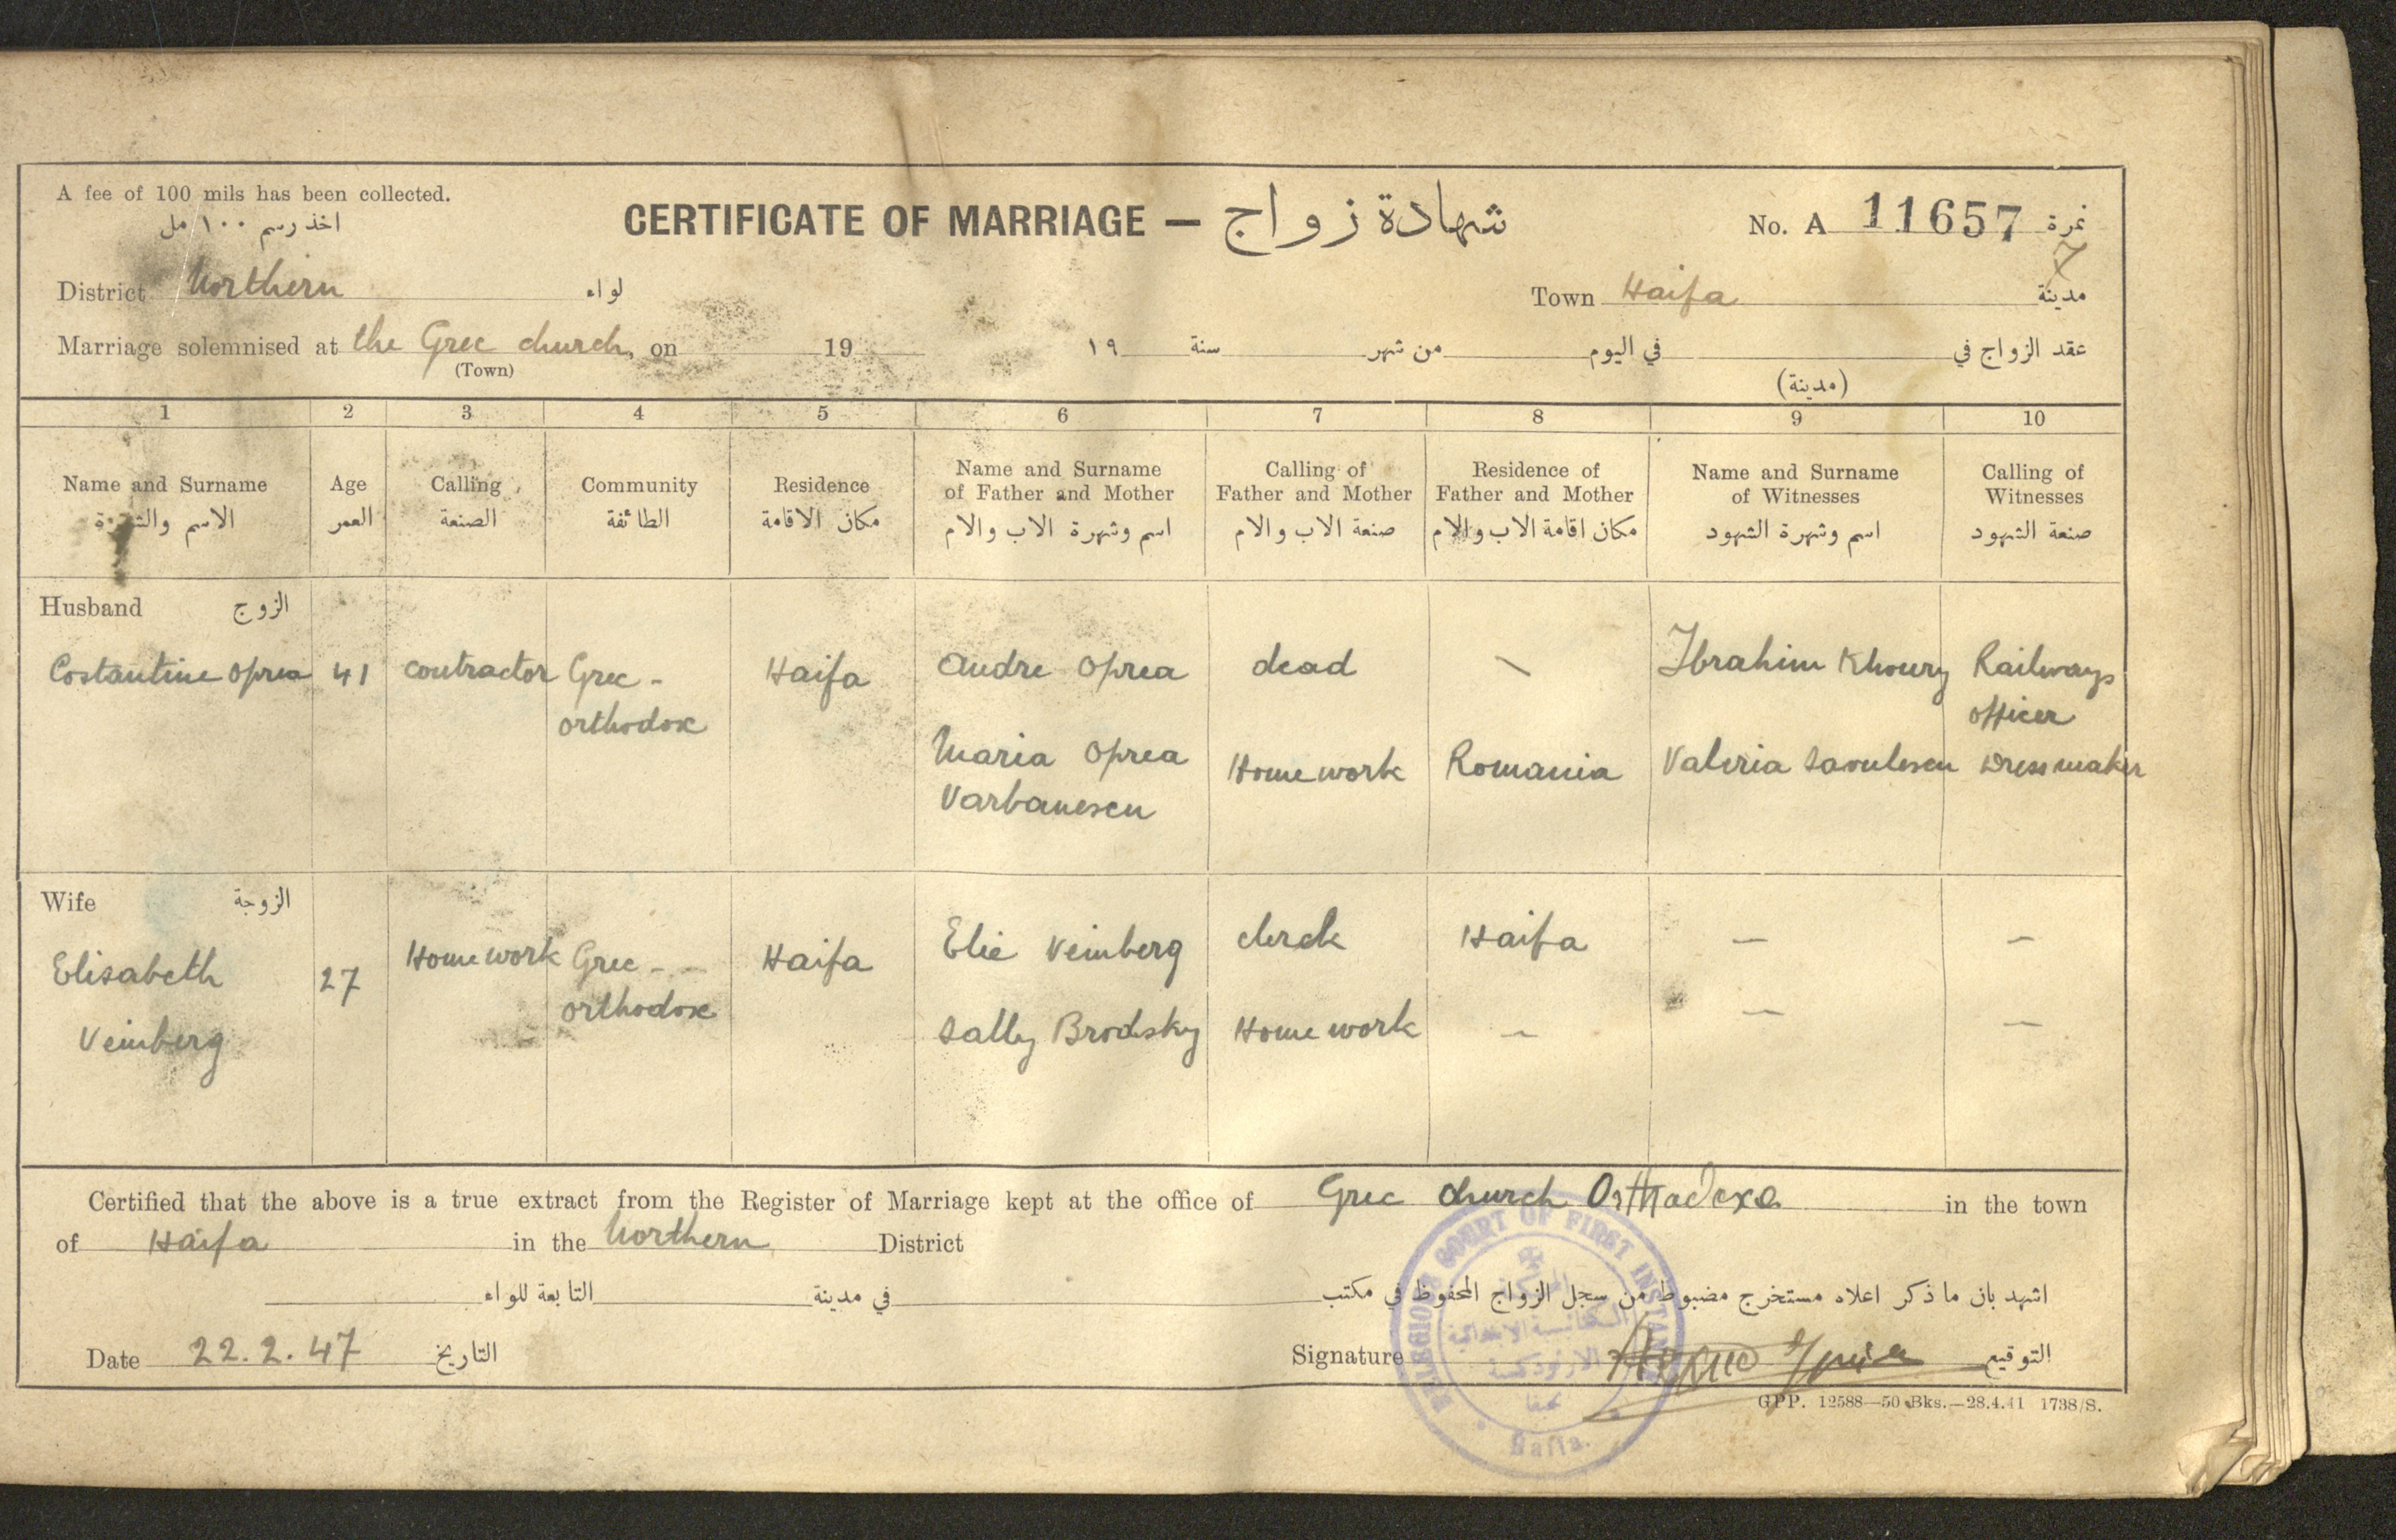 A fee of 100 mils has been collected.
اخذ رسم ١٠٠ مل
CERTIFICATE OF MARRIAGE — شهادة زواج
No. A 11657 نمرة
7
District Northern لواء
Town Haifa مدينة
Marriage solemnised at the Grec church, on 19
(Town)
عقد الزواج في في اليوم من شهر سنة ١٩
(مدينة)
1 2 3 4 5 6 7 8 9 10
Name and Surname
الاسم والشهرة
Age
العمر
Calling
الصنعة
Community
الطائفة
Residence
مكان الاقامة
Name and Surname
of Father and Mother
اسم وشهرة الاب والام
Calling of
Father and Mother
صنعة الاب والام
Residence of
Father and Mother
مكان اقامة الاب والام
Name and Surname
of Witnesses
اسم وشهرة الشهود
Calling of
Witnesses
صنعة الشهود
Husband الزوج
Costantine Oprea
41
contractor
Grec -
orthodox
Haifa
Andre Oprea
Maria Oprea
Varbanescu
dead
Home work
\
Romania
Ibrahim Khoury
Valeria Savulescu
Railways
officer
Dressmaker
Wife الزوجة
Elisabeth
Veinberg
27
Home work
Grec -
orthodox
Haifa
Elie Veinberg
Sally Brodsky
clerck
Home work
Haifa
—
—
—
—
—
Certified that the above is a true extract from the Register of Marriage kept at the office of Grec church Orthadoxa in the town
of Haifa in the Northern District
اشهد بان ما ذكر اعلاه مستخرج مضبوط من سجل الزواج المحفوظ في مكتب
في مدينة التابعة للواء
Date 22.2.47 التاريخ
Signature التوقيع
RELIGIOUS COURT OF FIRST INSTANCE
الكنائسية الابتدائية
الارثوذكسية
بحيفا
Haifa.
GPP. 12588—50 Bks.—28.4.41 1738/S.